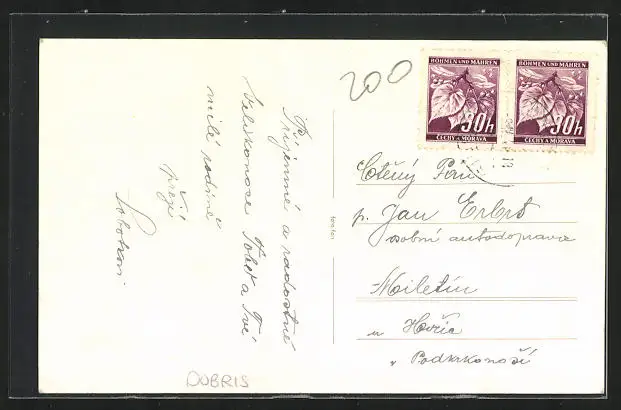 200
BÖHMEN UND MÄHREN
30h
ČECHY A MORAVA
BÖHMEN UND MÄHREN
30h
ČECHY A MORAVA
Příjemné a radostné
Velikonoce Tobě a Tvé
milé rodině
přeje
Ctěný Pán
p. Jan Erbrt
osobní autodoprava
Miletín
u Hořic
v Podkrkonoší
DOBRIS